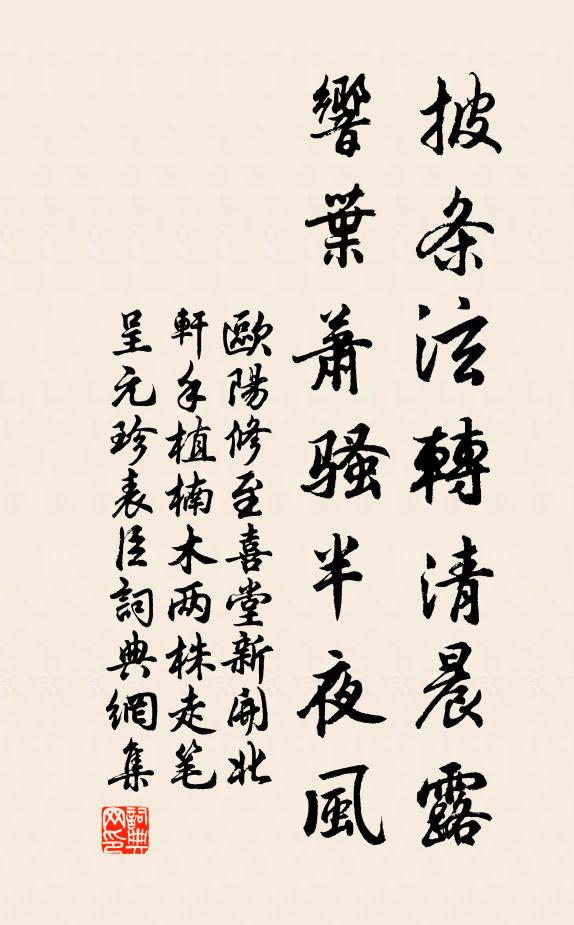 披条泫轉清晨露
響葉蕭騷半夜風
歐陽修至喜堂新開北
軒手植楠木两株走笔
呈元珍表臣詞典網集
詞典网印